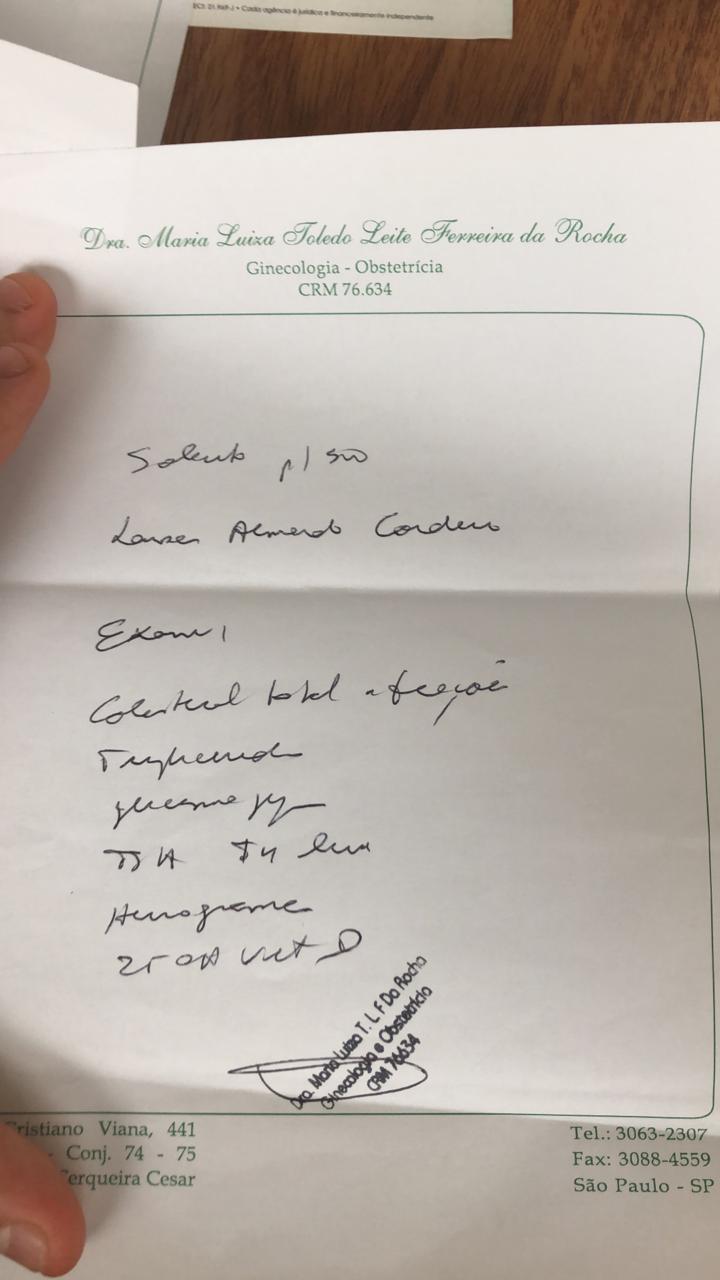 ECJ: 21.969-J • Cada agência é jurídica e financeiramente independente
Dra. Maria Luiza Toledo Leite Ferreira da Rocha
Ginecologia - Obstetrícia
CRM 76.634
Solicito p/
Almeida Cordeiro
Exames
Colesterol total e frações
Triglicerides
glicemia jejum
TSH T4 livre
Hemograma
25 OH Vit D
Dra. Maria Luiza T. L. F Da Rocha
Ginecologia e Obstetrícia
CRM 76634
Cristiano Viana, 441
- Conj. 74 - 75
Cerqueira Cesar
Tel.: 3063-2307
Fax: 3088-4559
São Paulo - SP